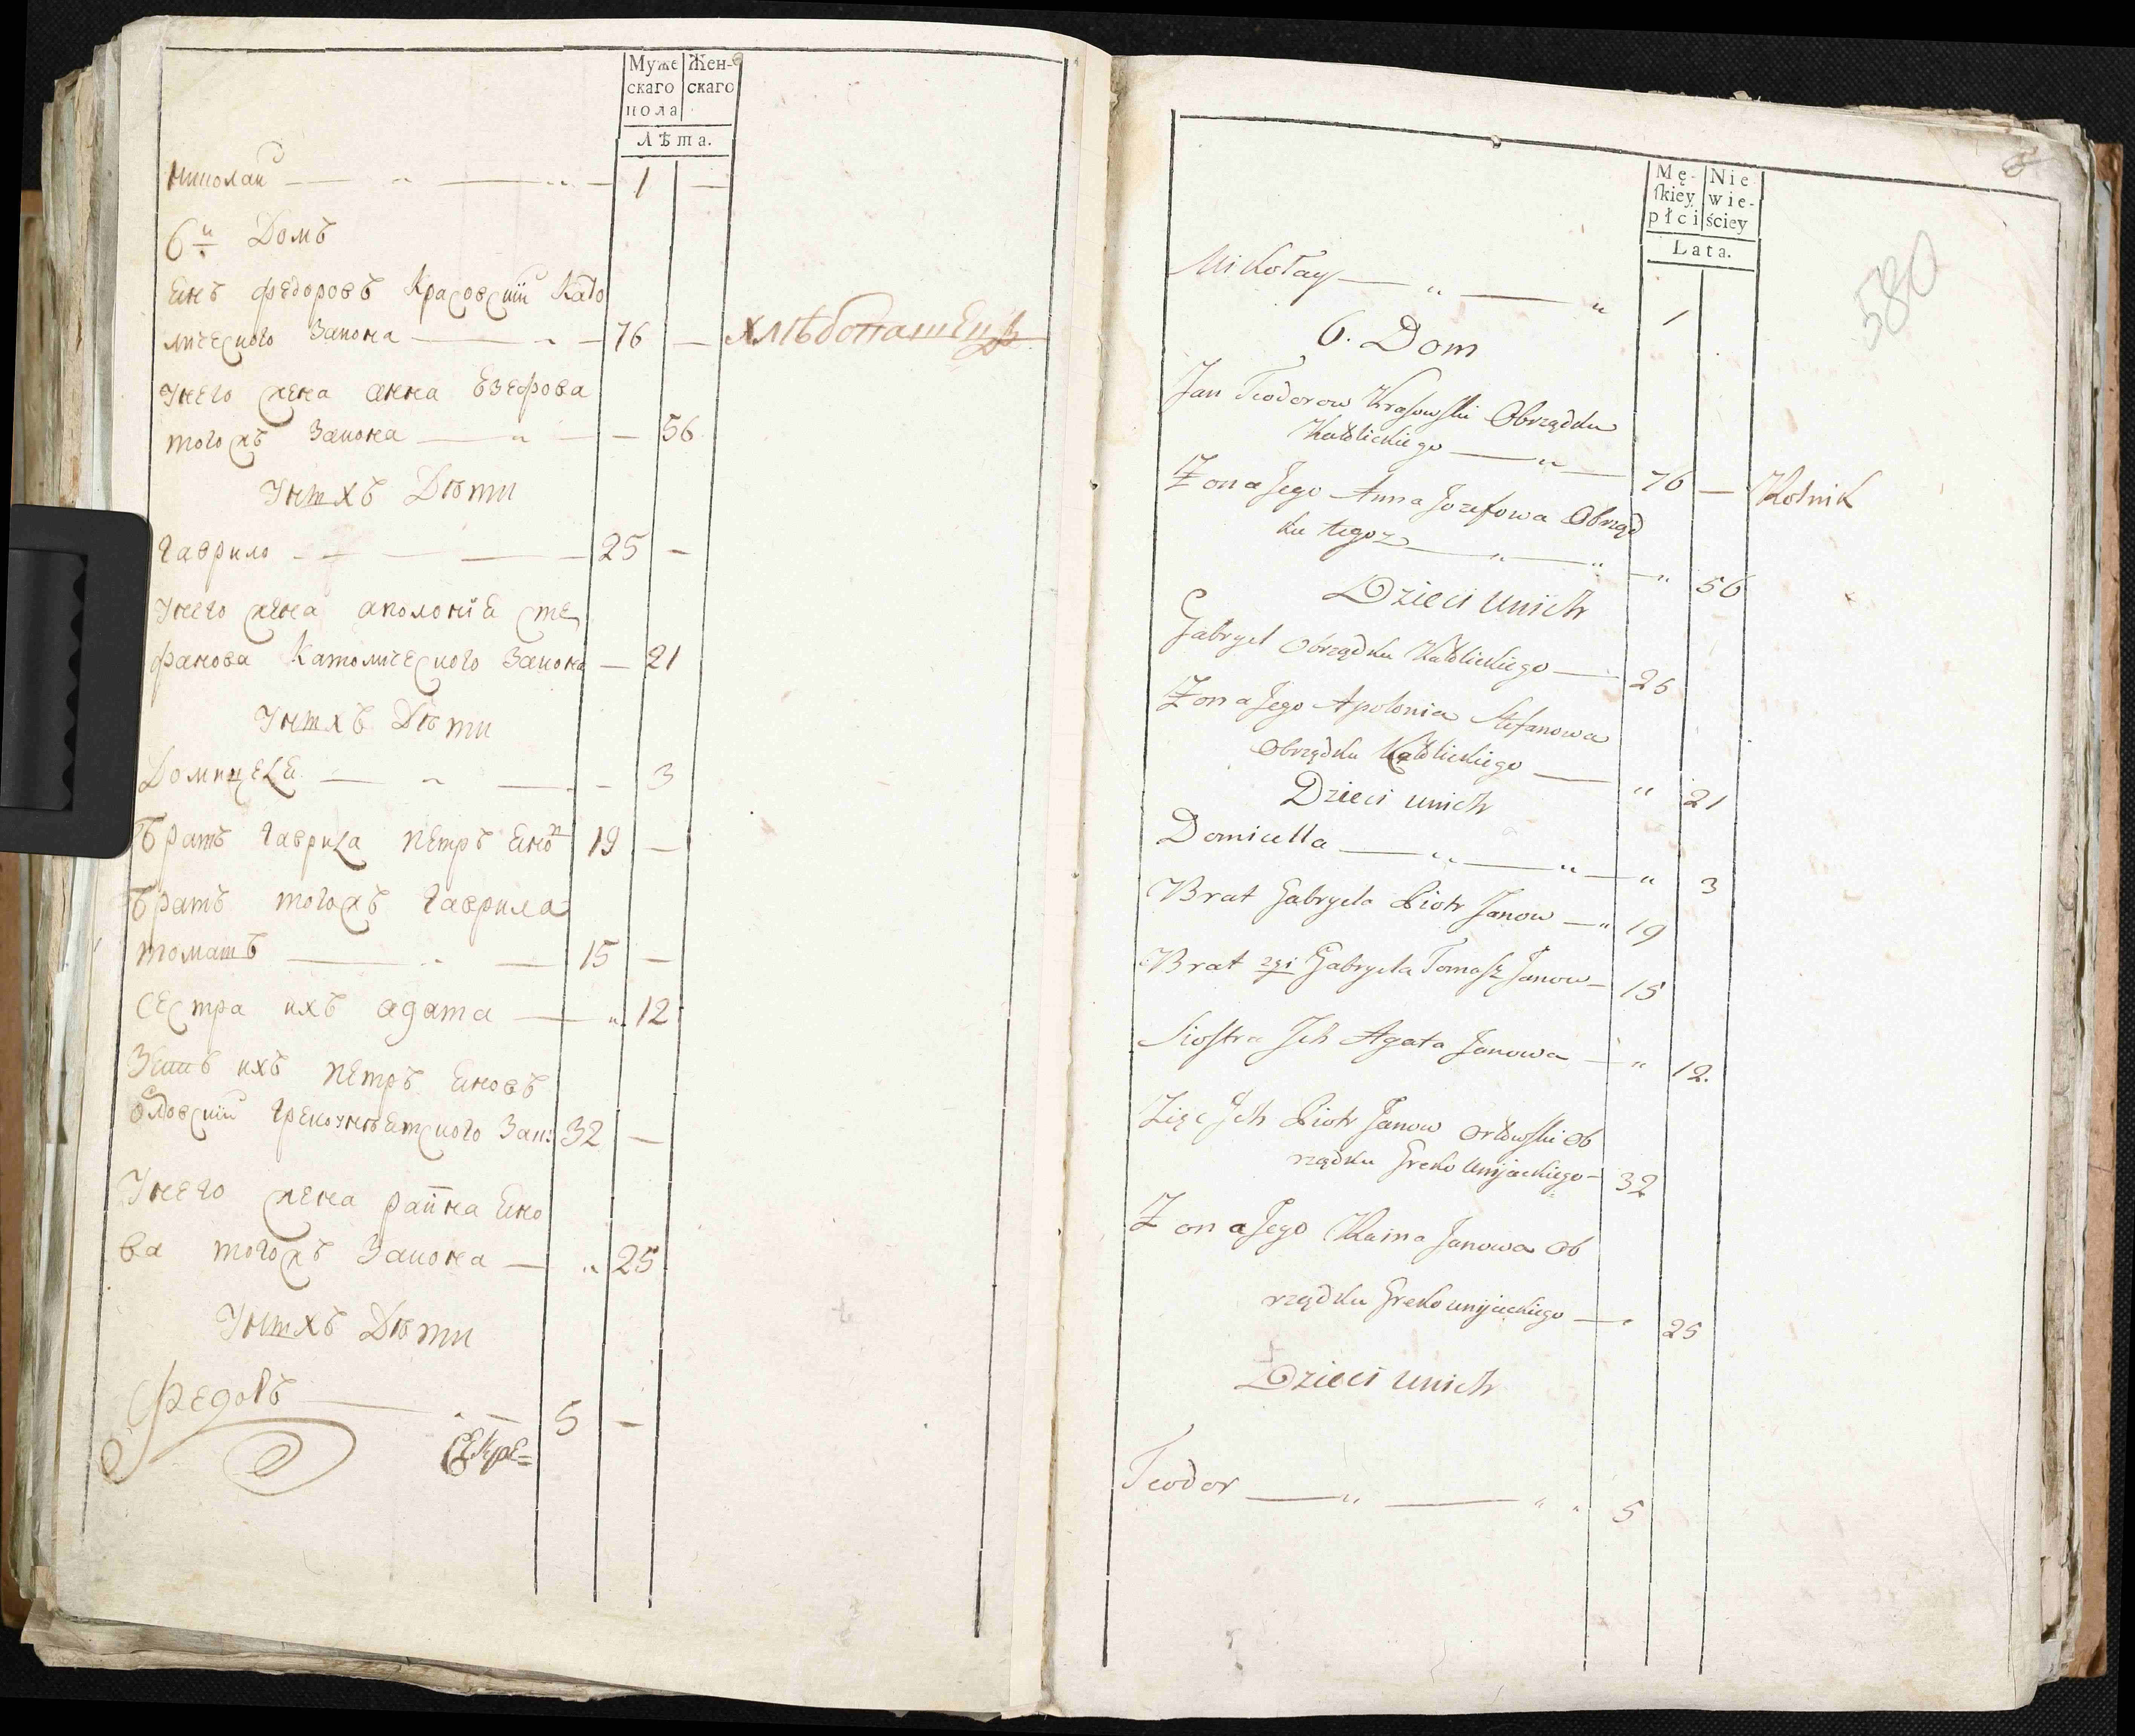 Муже Жен-
скаго скаго
пола
Лѣта.
Николай — „ — „ — 1 —
6й Домъ
Енъ Федоровъ Красовский Като
лического Закона — „ — 76 — Хлѣбопашецъ
Унего жена анна Езефова
тогожъ Закона — „ — — 56
Унтхъ Дѣти
Гаврило — — — 25 —
Унего жена аполонїе Сте
фанова Католического Закона — 21
Унтхъ Дѣти
Домицеле — „ — — 3
Братъ Гаврила Петръ Ено 19 —
Братъ тогожъ Гаврила
томашъ — „ — 15 —
Сестра ихъ агата — „ 12
Зеть ихъ Петръ Еновъ
Грекоунѣетского Зак: 32 —
Унего жена раина Ено
ва тогожъ Закона — „ 25
Унтхъ Дѣти
Федоръ — „ — 5 —
Секре=
6
580
Mę- Nie
skiey wie-
płci ściey
Lata.
Mikołay — „ — „ 1
6. Dom
Jan Teodorow Krasowski Obrządku
Katolickiego — „ — 76 — Rolnik
Żona Jego Anna Jozefowa Obrząd
ku tegoz — „ — „ — „ 56
Dzieci unich
Gabryel Obrządku Katolickiego — 25
Żona Jego Apolonia Stefanowa
Obrządku Katolickiego — „ 21
Dzieci unich
Domicella — „ — „ — „ 3
Brat Gabryela Piotr Janow — „ 19
Brat 2gi Gabryela Tomasz Janow — 15
Siostra Jch Agata Janowa — „ 12.
Zięc Jch Piotr Janow Orłowski Ob
rządku Greko Unijackiego — 32
Żona Jego Raina Janowa Ob
rządku Greko unijackiego — „ 25
Dzieci unich
Teodor — „ — „ „ 5